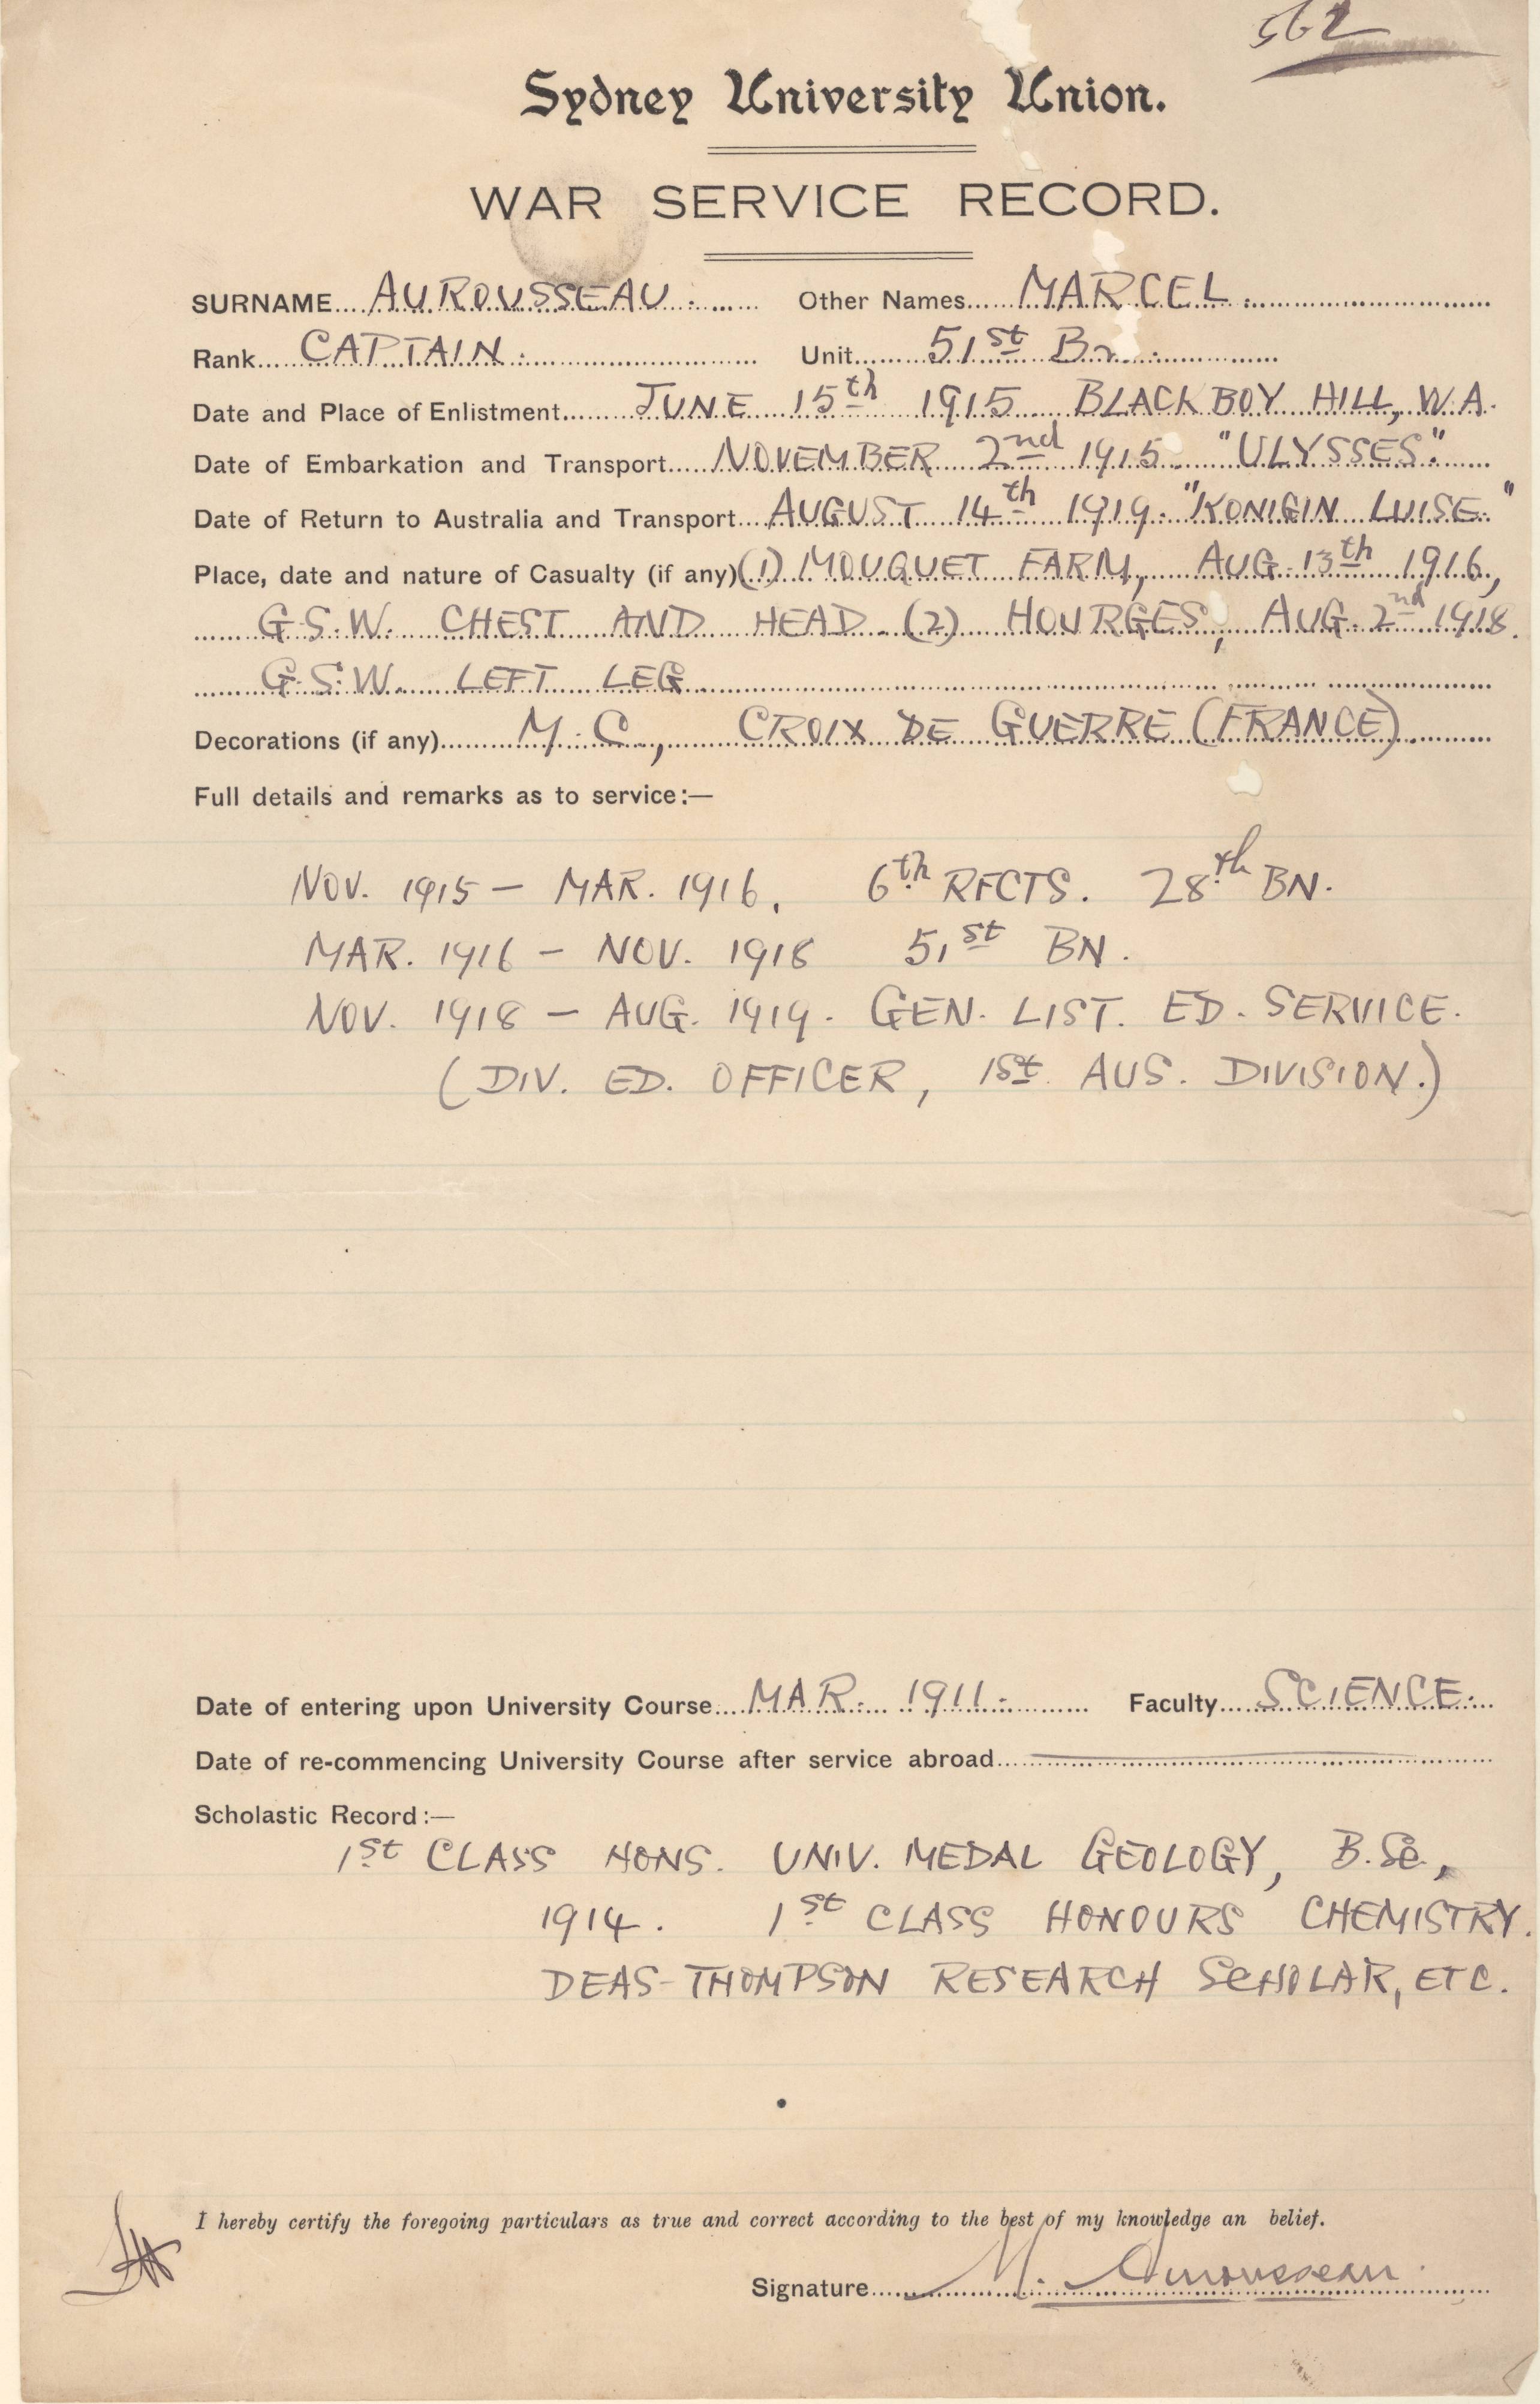 562
Sydney University Union.
WAR SERVICE RECORD.
SURNAME AUROUSSEAU. Other Names MARCEL.
Rank CAPTAIN. Unit 51st Bn.
Date and Place of Enlistment JUNE 15th 1915 BLACKBOY HILL, W.A.
Date of Embarkation and Transport NOVEMBER 2nd 1915 "ULYSSES".
Date of Return to Australia and Transport AUGUST 14th 1919. "KONIGIN LUISE."
Place, date and nature of Casualty (if any) (1) MOUQUET FARM, AUG. 13th 1916,
G.S.W. CHEST AND HEAD. (2) HOURGES, AUG. 2nd 1918.
G.S.W. LEFT LEG
Decorations (if any) M.C., CROIX DE GUERRE (FRANCE)
Full details and remarks as to service:—
NOV. 1915 — MAR. 1916. 6th RFCTS. 28th BN.
MAR. 1916 — NOV. 1918 51st BN.
NOV. 1918 — AUG. 1919. GEN. LIST. ED. SERVICE.
(DIV. ED. OFFICER, 1st AUS. DIVISION.)
Date of entering upon University Course MAR. 1911. Faculty SCIENCE.
Date of re-commencing University Course after service abroad
Scholastic Record:—
1st CLASS HONS. UNIV. MEDAL GEOLOGY, B.Sc.,
1914. 1st CLASS HONOURS CHEMISTRY.
DEAS-THOMPSON RESEARCH SCHOLAR, ETC.
I hereby certify the foregoing particulars as true and correct according to the best of my knowledge an belief.
Signature M. Aurousseau.